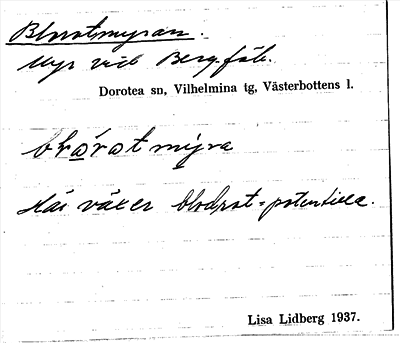 Blorotmyran.
Myr vid Bergfäb.
Dorotea sn, Vilhelmina tg, Västerbottens l.
Här växer blodrot = potentilla.
Lisa Lidberg 1937.